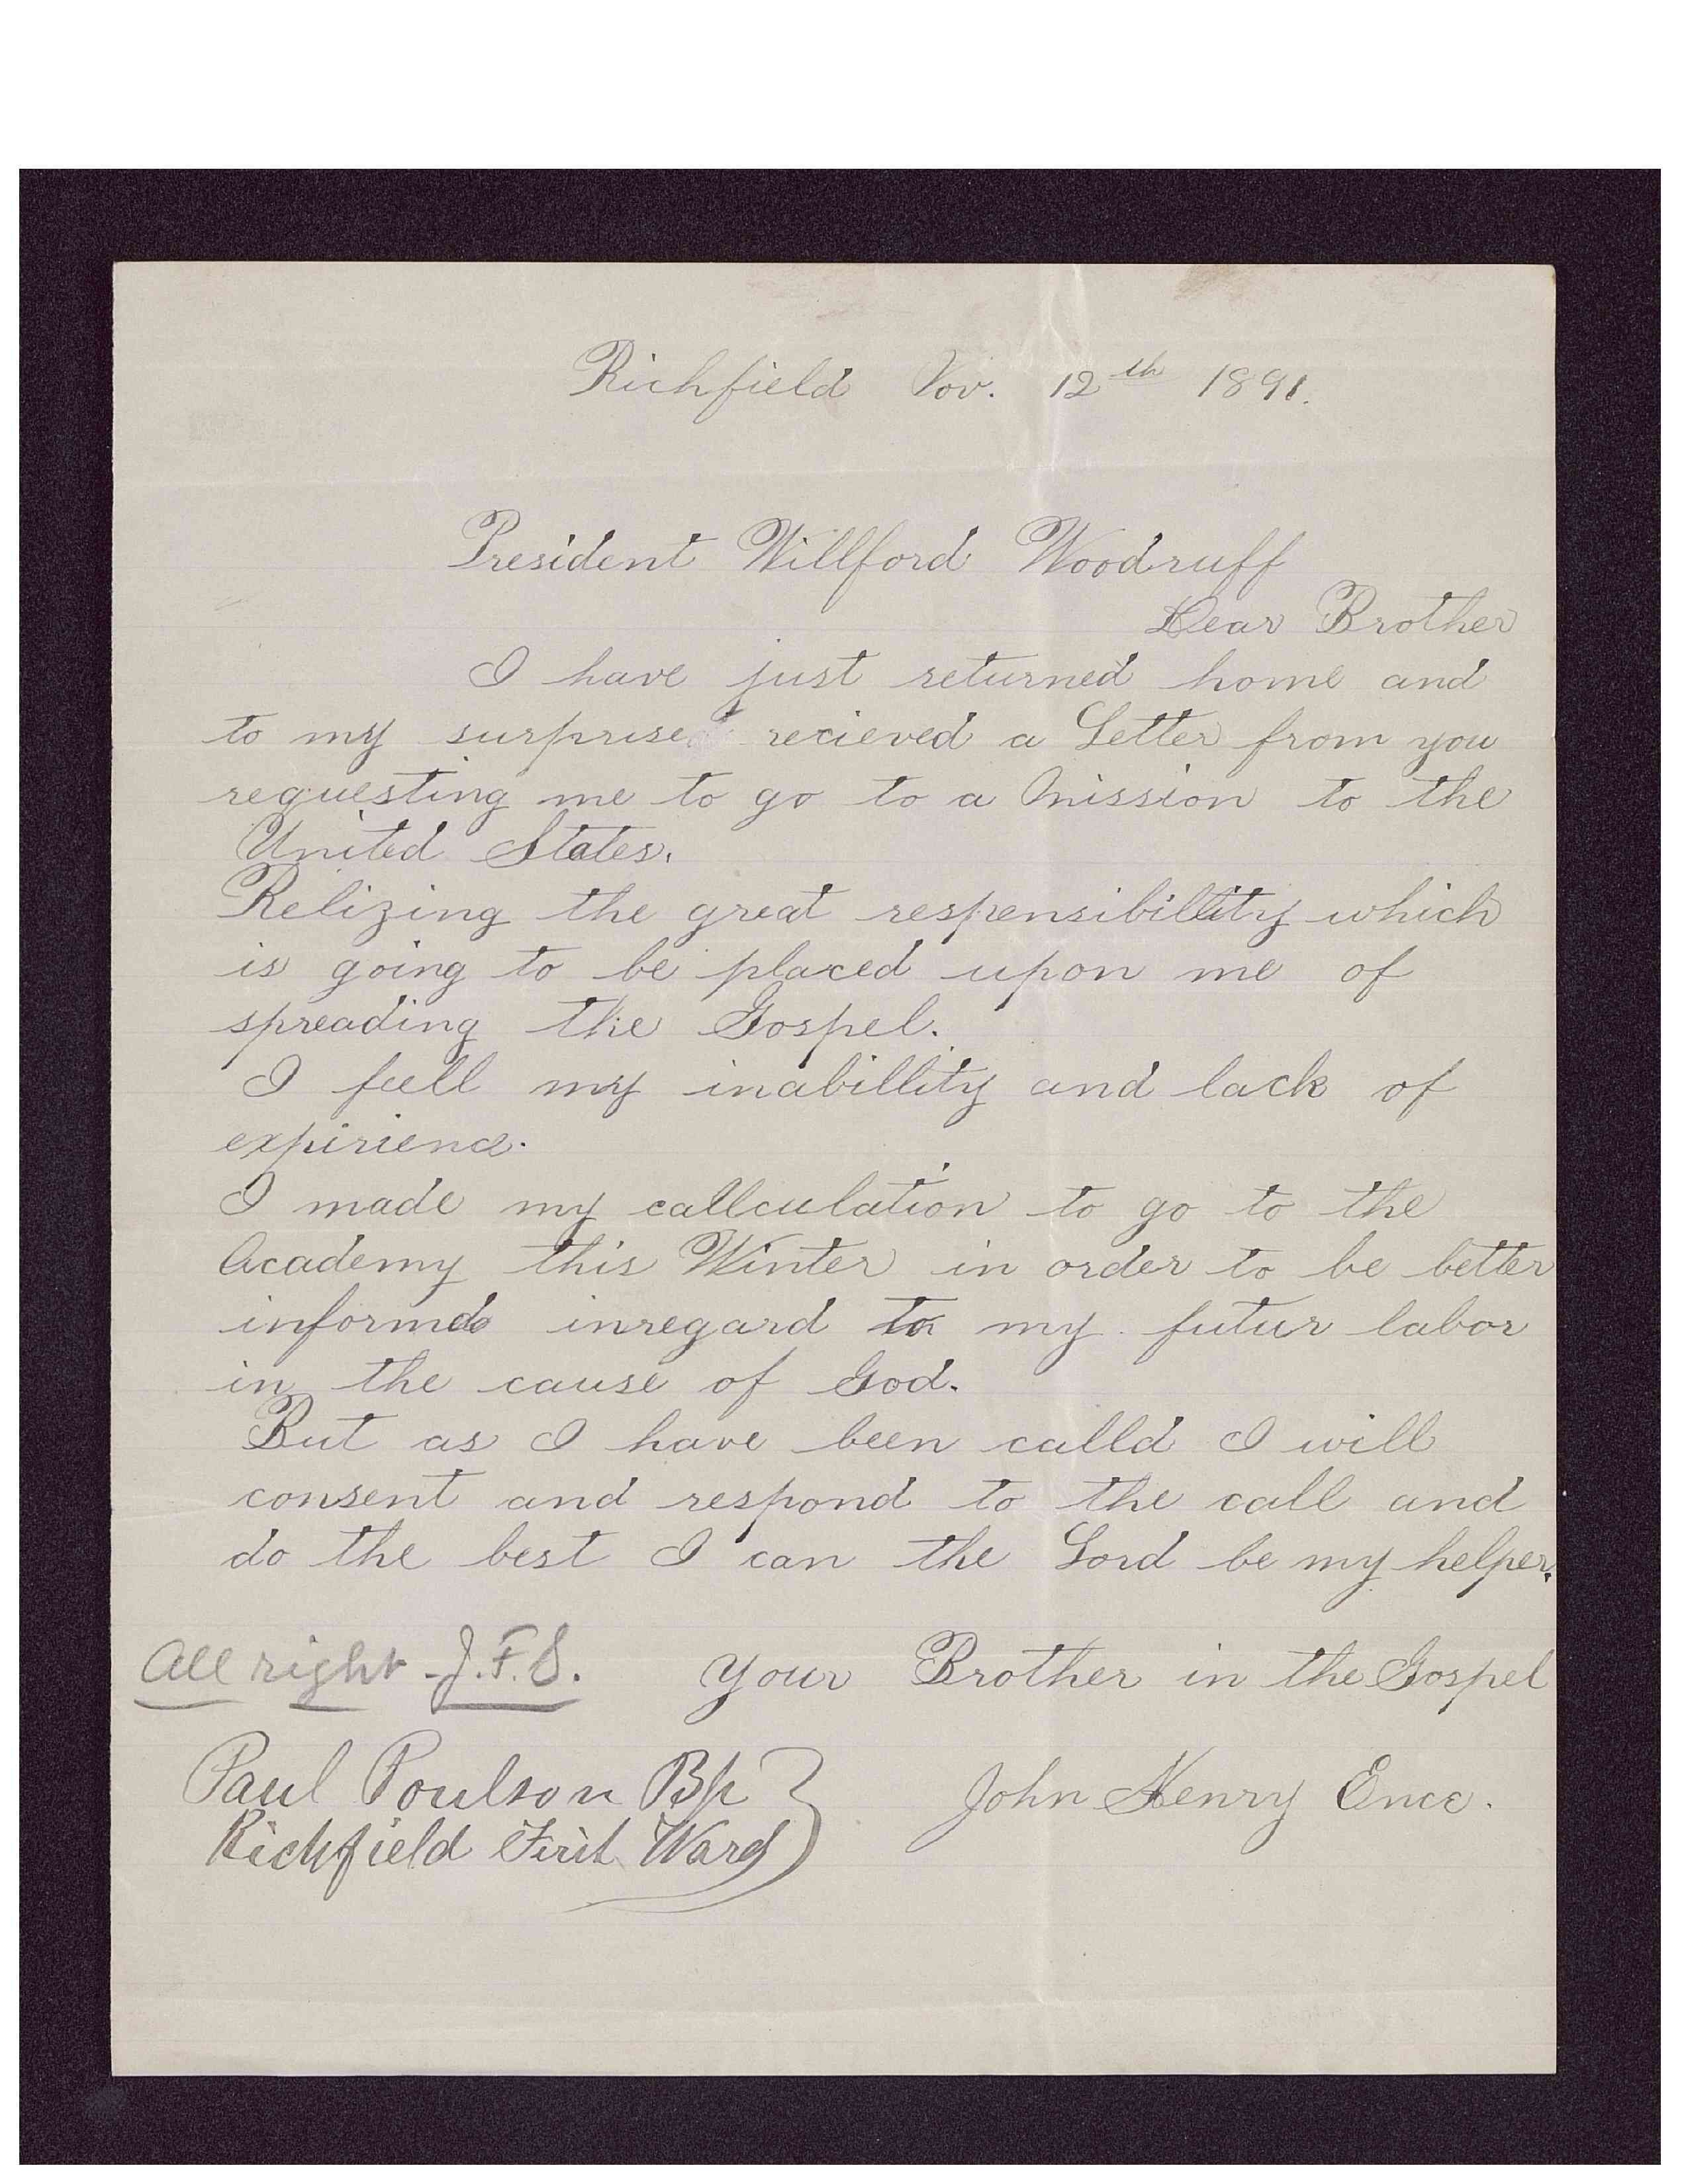 Richfield Nov. 12th 1891.
President Willford Woodruff
Dear Brother
I have just returned home and
to my surprise recieved a Letter from you
requesting me to go to a Mission to the
United States.
Relizing the great responsibillity which
is going to be placed upon me of
spreading the Gospel.
I feell my inabillity and lack of
expirience.
I made my callculation to go to the
Academy this Winter in order to be better
informed inregard to my futur labor
in the cause of God.
But as I have been calld I will
consent and respond to the call and
do the best I can the Lord be my helper.
All right - J.F.S. Your Brother in the Gospel
Paul Poulson Bp John Henry Ence.
Richfield First Ward